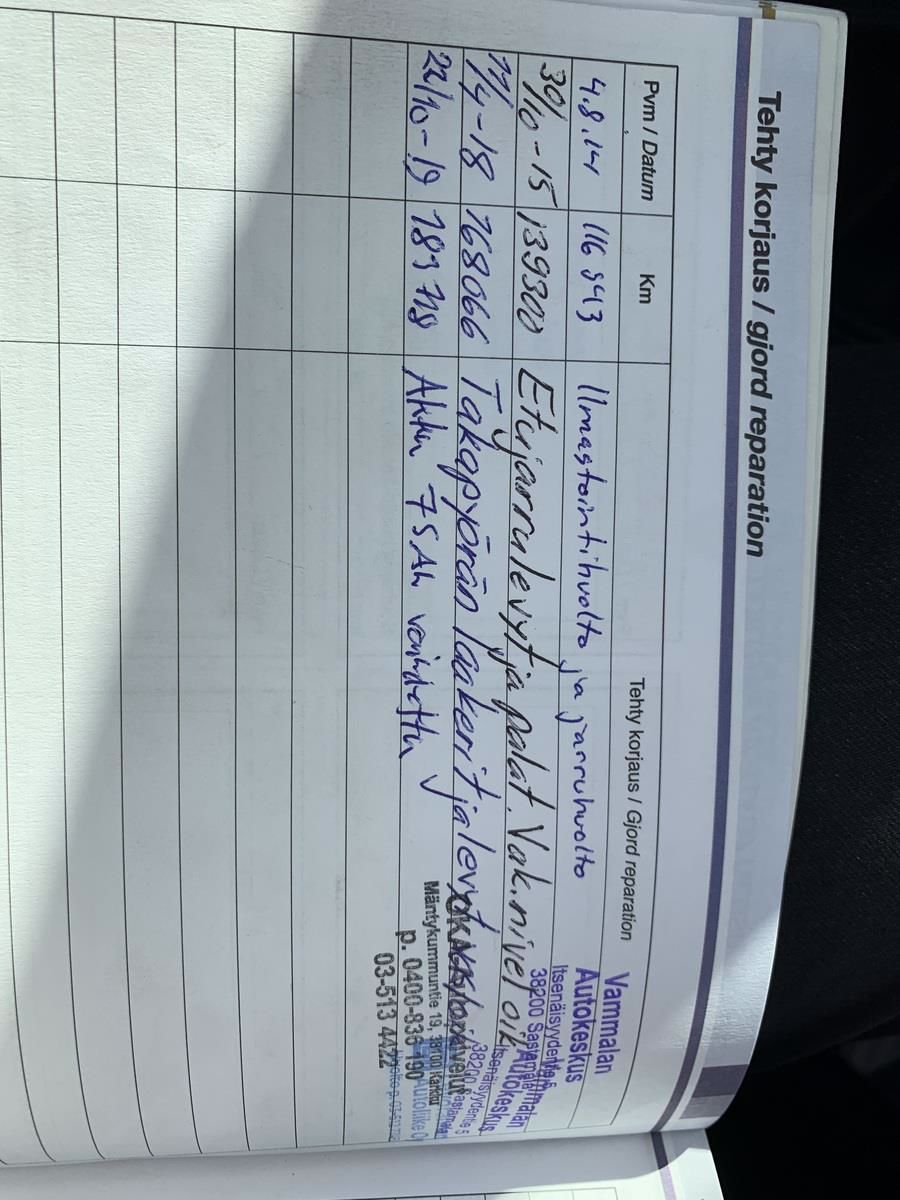 Tehty korjaus / gjord reparation
Pvm / Datum Km Tehty korjaus / Gjord reparation
4.8.14 116 943 Ilmastointihuolto ja jarruhuolto
Vammalan
Autokeskus
Itsenäisyydentie 5
38200 Sastamala
30/10-15 139300 Etujarrulevyt ja palat. Vak.nivel oik
Vammalan
Autokeskus
Itsenäisyydentie 5
38200 Sastamala
11/4-18 168066 Takapyörän laakerit ja levyt
22/10-19 183718 Akku 75Ah vaihdettu
Mäntykummuntie 19, 38100 Karkku
p. 0400-836 190
03-513 4422